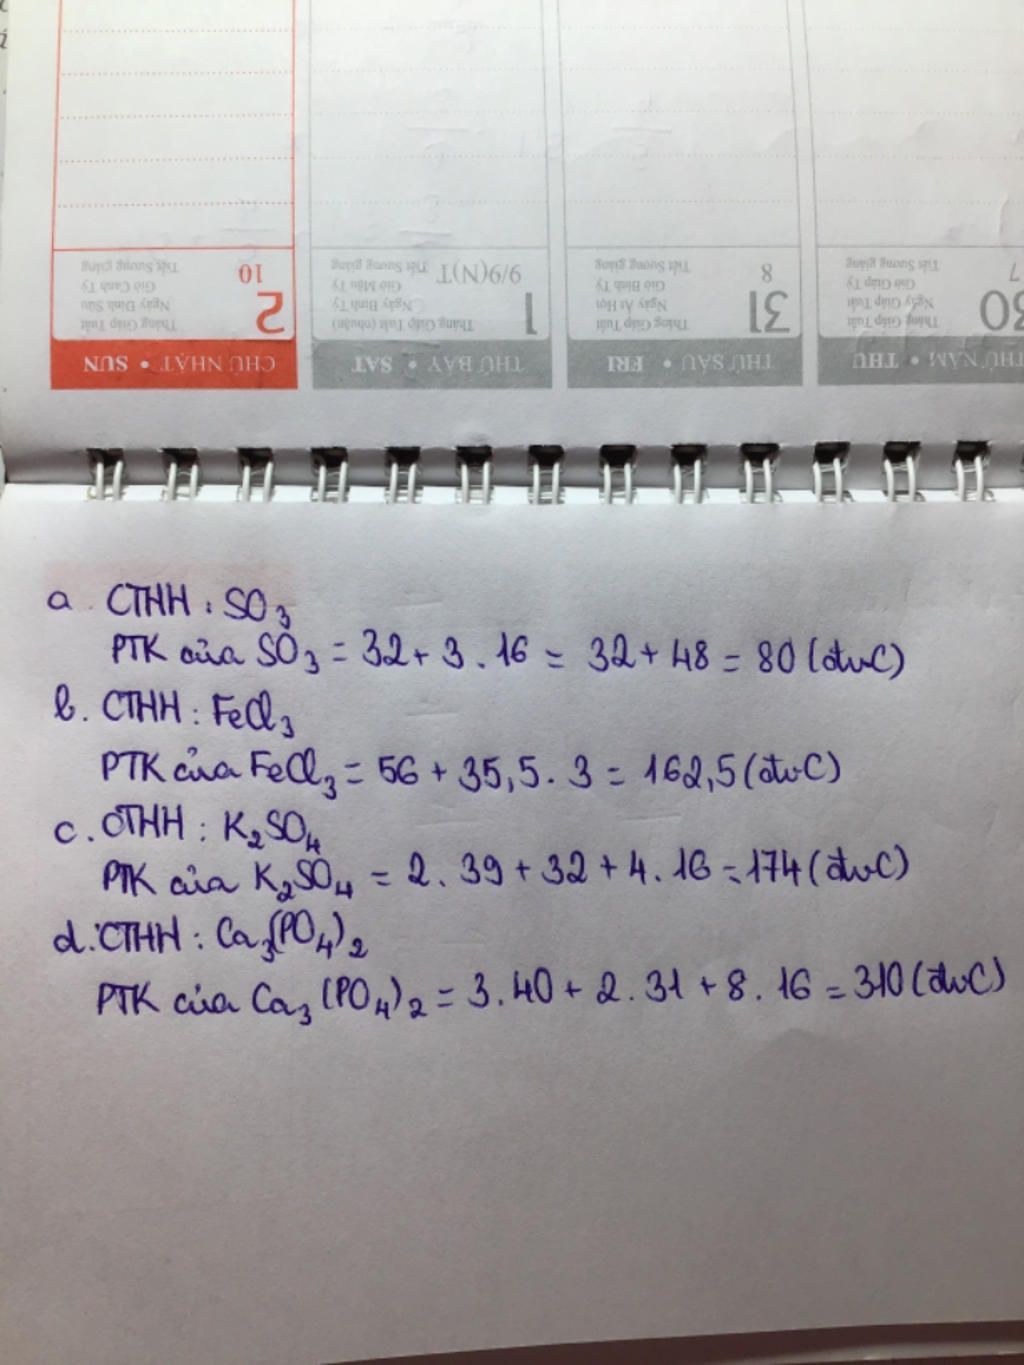 30
Tháng Giáp Tuất
Ngày Giáp Tuất
Giờ Giáp Tý
Tiết Sương giáng
7
THỨ NĂM • THU
31
Tháng Giáp Tuất
Ngày Ất Hợi
Giờ Bính Tý
Tiết Sương giáng
8
THỨ SÁU • FRI
1
Tháng Giáp Tuất (nhuận)
Ngày Bính Tý
Giờ Mậu Tý
Tiết Sương giáng
9/9(N)T
THỨ BẢY • SAT
2
Tháng Giáp Tuất
Ngày Đinh Sửu
Giờ Canh Tý
Tiết Sương giáng
10
CHỦ NHẬT • SUN
a. CTHH : SO₃
PTK của SO₃ = 32 + 3 . 16 = 32 + 48 = 80 (đvC)
b. CTHH : FeCl₃
PTK của FeCl₃ = 56 + 35,5 . 3 = 162,5 (đvC)
c. CTHH : K₂SO₄
PTK của K₂SO₄ = 2 . 39 + 32 + 4 . 16 = 174 (đvC)
d. CTHH : Ca₃(PO₄)₂
PTK của Ca₃(PO₄)₂ = 3 . 40 + 2 . 31 + 8 . 16 = 310 (đvC)